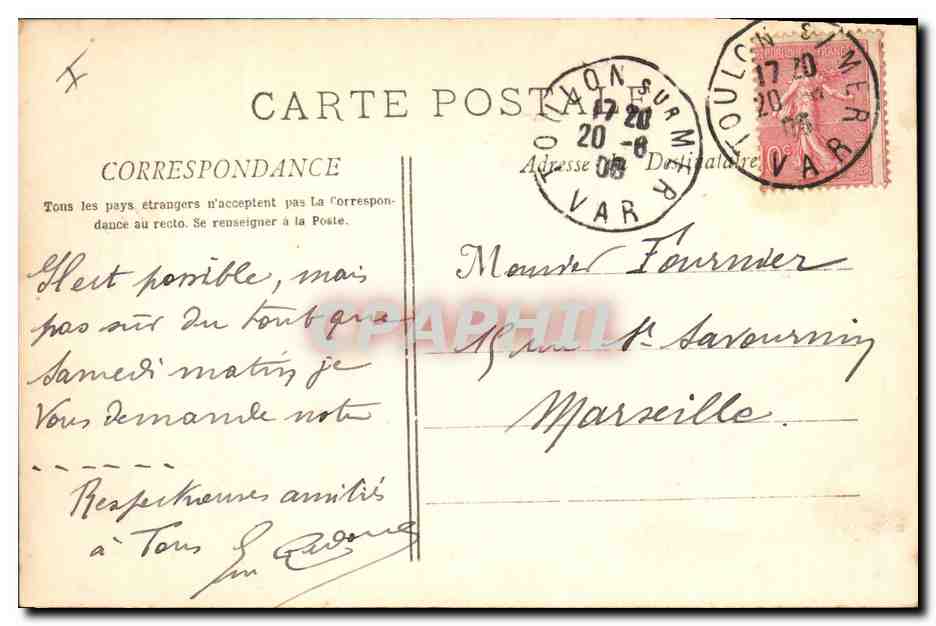 CARTE POSTALE
TOULON SUR MER
17 20
20 -6
06
VAR
TOULON S/ MER
17 20
20
06
VAR
CORRESPONDANCE
Tous les pays étrangers n'acceptent pas La Correspon-
dance au recto. Se renseigner à la Poste.
Adresse du Destinataire
Il est possible, mais
pas sûr du tout que
Samedi matin je
Vous demande notre
------
Respectueuses amitiés
à Tous
Monsier Fournier
15 rue St Savournin
Marseille.
CPAPHIL